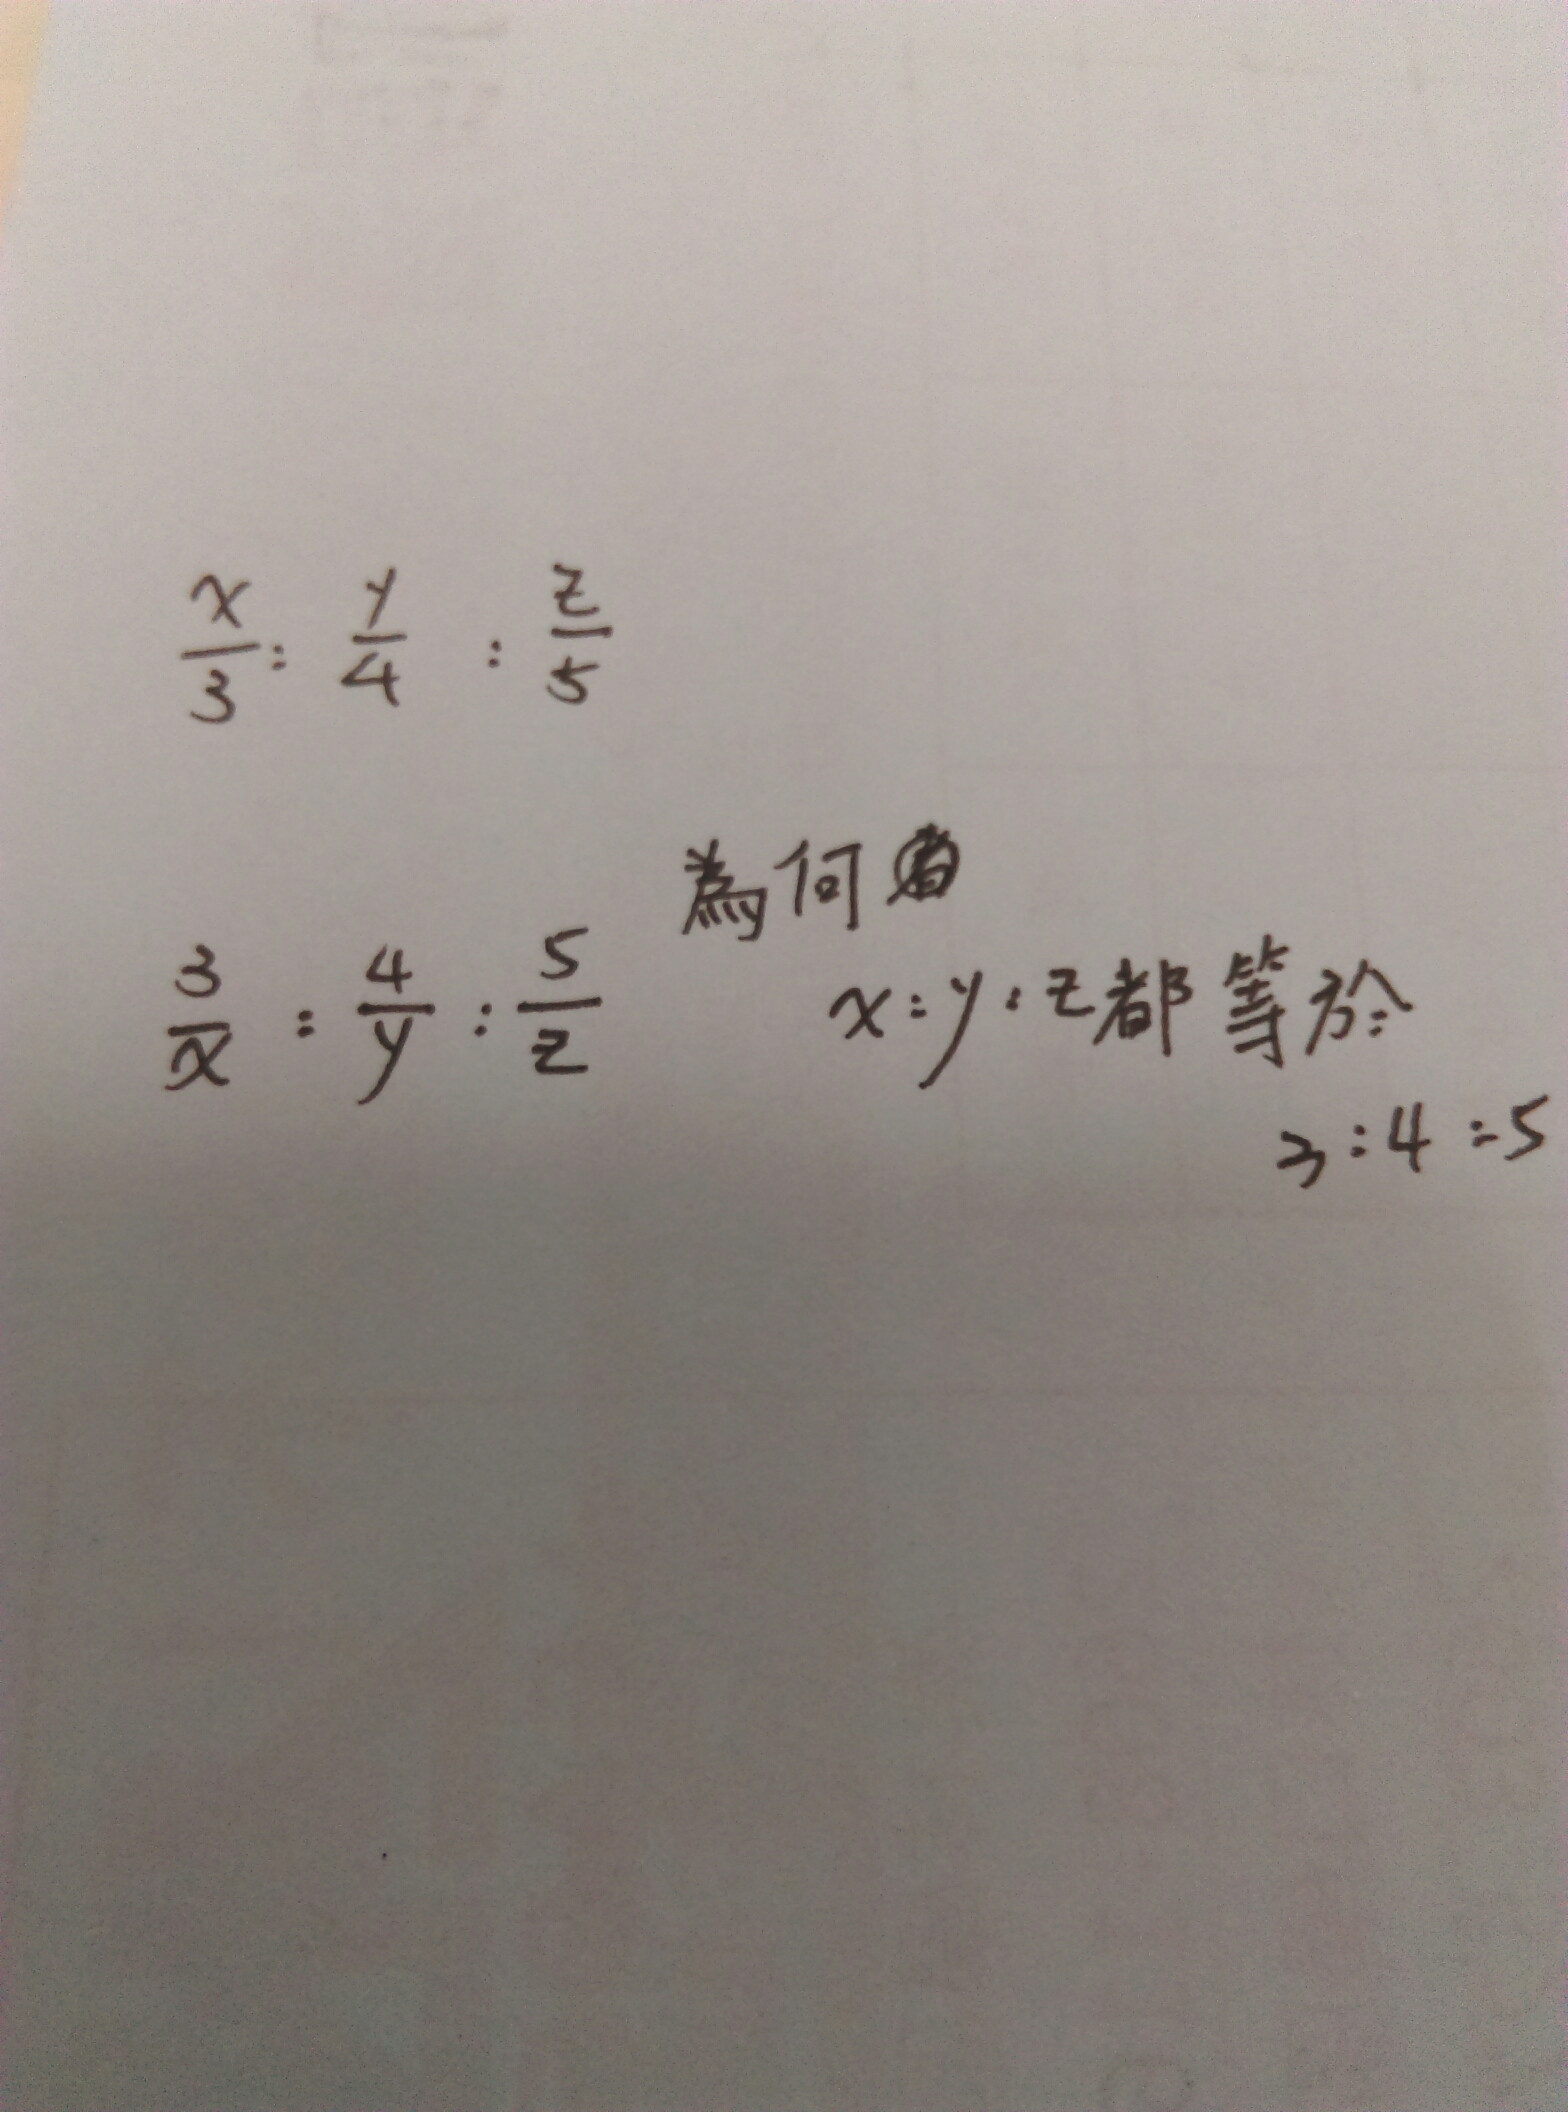 x/3 : y/4 : z/5
為何
3/x : 4/y : 5/z
x:y:z都等於
3:4:5